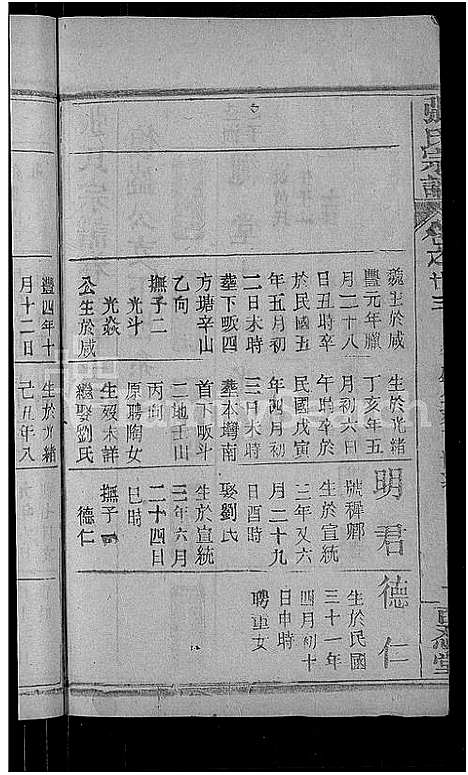 張氏宗譜
卷之廿三
魏生於咸
豐元年臘
月二十八
日丑時卒
於民國五
年五月初
二日未時
塟下畈四
方塘辛山
乙向
撫子二
光斗
光焱
公生於咸
豐四年十
月十二日
生於光緒
丁亥年五
月初六日
午時卒於
民國戊寅
年四月初
三日未時
塟本塆南
首下畈斗
二地壬山
丙向
原聘陶女
生歿未詳
繼娶劉氏
生於光緒
己丑年八
明君
號穉卿
生於宣統
三年又六
月二十九
日酉時
娶劉氏
生於宣統
三年六月
二十四日
巳時
撫子一
德仁
德仁
生於民國
三十一年
四月初十
日申時
聘車女